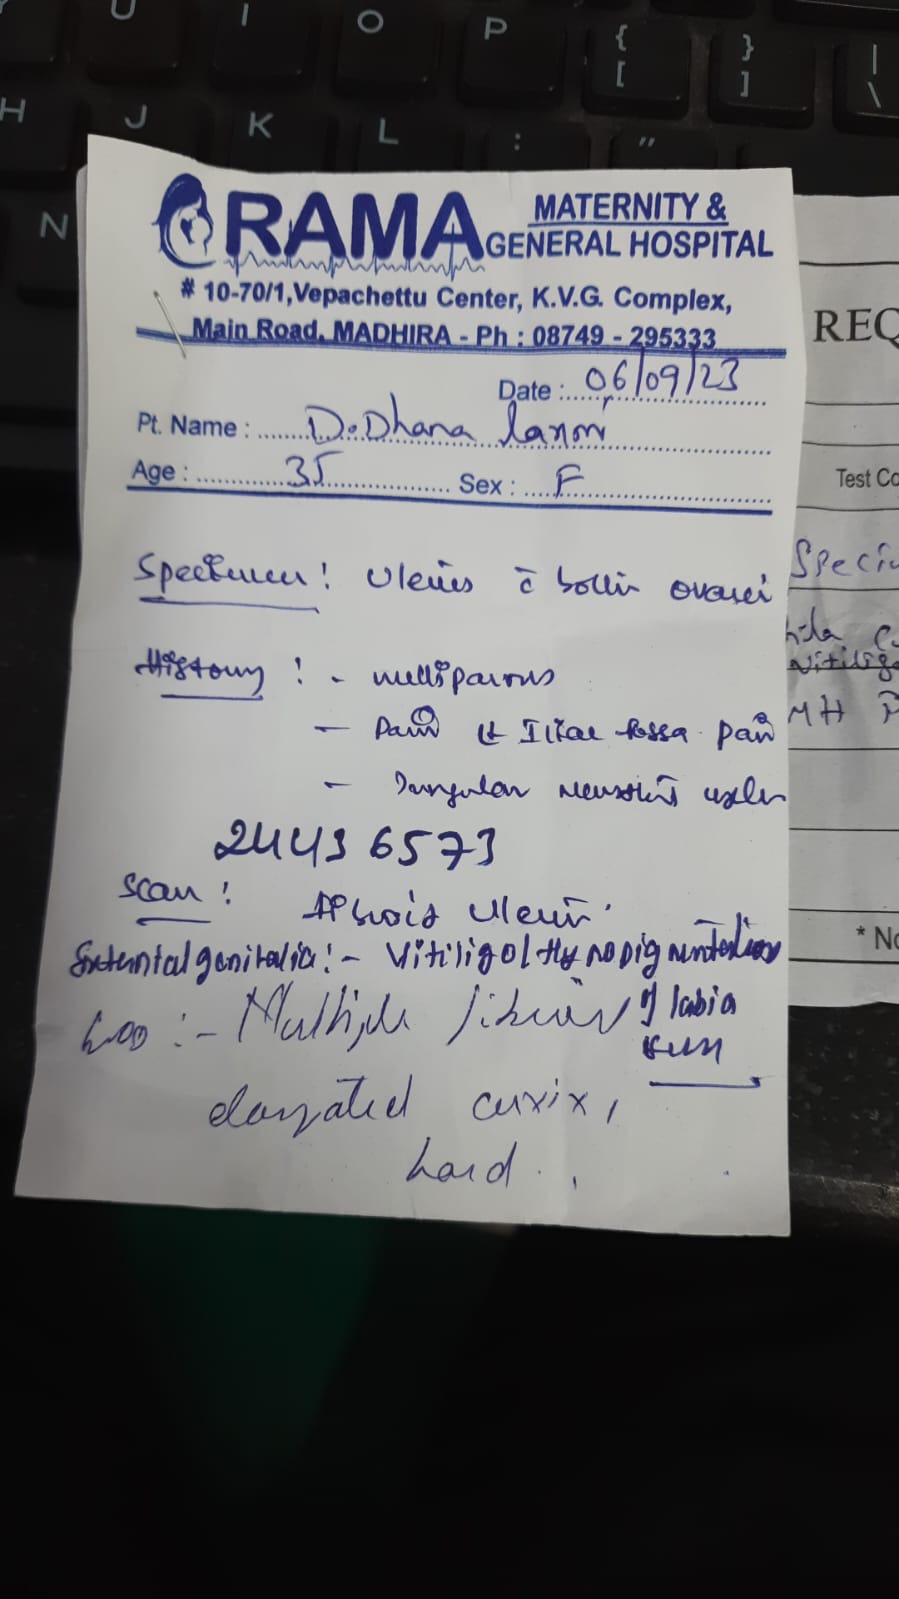 U I O P { [ } ] | \
H J K L : "
N
RAMA MATERNITY &
GENERAL HOSPITAL
# 10-70/1,Vepachettu Center, K.V.G. Complex,
Main Road, MADHIRA - Ph : 08749 - 295333
Date : 06/09/23
Pt. Name : D.Dhana
Age : 35 Sex : F
Specimen : Uterus c̄ both ovaries
History : -
- Pain Lt Iliac fossa pain
- Irregular
24436573
Scan :
External genitalia :- Vitiligo
:- Multiple of labia
elongated cervix,
hard.
REQ
Test Co
Speci
MH
* No